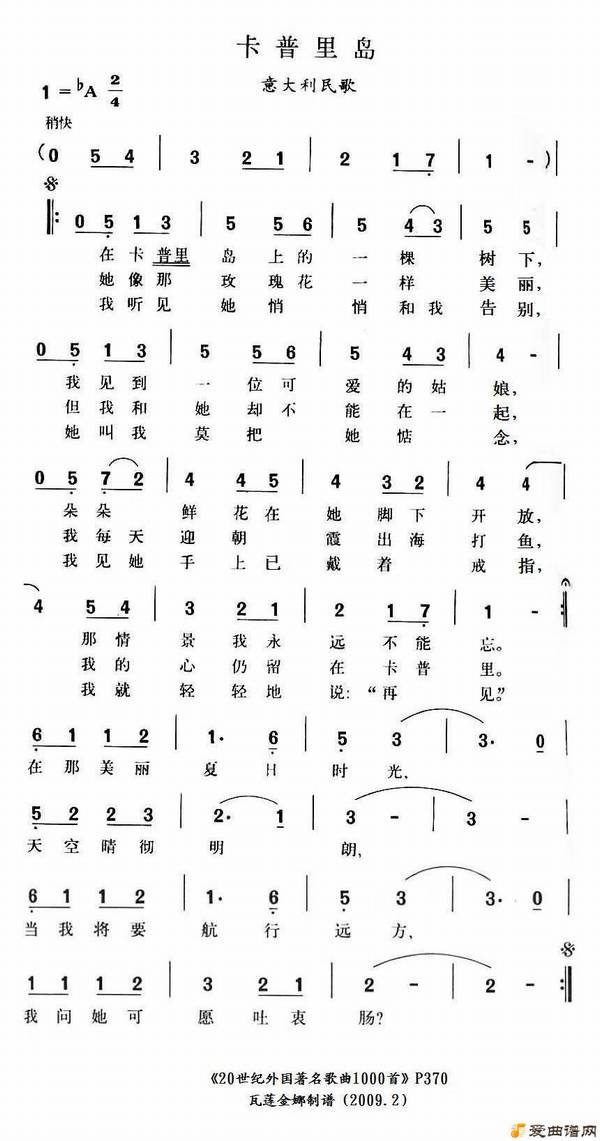 卡普里岛
意大利民歌
1=♭A 2/4
稍快
(0 5 4 | 3 2 1 | 2 1 7 | 1 - )|
0 5 1 3 | 5 5 6 | 5 4 3 | 5 5 |
在卡普里 岛上的 一棵 树下,
她像那 玫瑰花 一样 美丽,
我听见 她悄 悄和我 告别,
0 5 1 3 | 5 5 6 | 5 4 3 | 4 - |
我见到 一位可 爱的姑 娘,
但我和 她却不 能在一 起,
她叫我 莫把 她惦 念,
0 5 7 2 | 4 4 5 | 4 3 2 | 4 4 |
朵朵 鲜花在 她脚下 开放,
我每天 迎朝 霞出海 打鱼,
我见她 手上已 戴着 戒指,
4 5 4 | 3 2 1 | 2 1 7 | 1 - :|
那情 景我永 远不能 忘。
我的 心仍留 在卡普 里。
我就 轻轻地 说:“再 见。”
6 1 1 2 | 1· 6 | 5 3 | 3· 0 |
在那美丽 夏日 时光,
5 2 2 3 | 2· 1 | 3 - | 3 - |
天空晴彻 明 朗,
6 1 1 2 | 1· 6 | 5 3 | 3· 0 |
当我将要 航行 远方,
1 1 1 2 | 3 2 1 | 2 - | 2 - :|
我问她可 愿吐衷 肠?
《20世纪外国著名歌曲1000首》P370
瓦莲金娜制谱(2009.2)
爱曲谱网